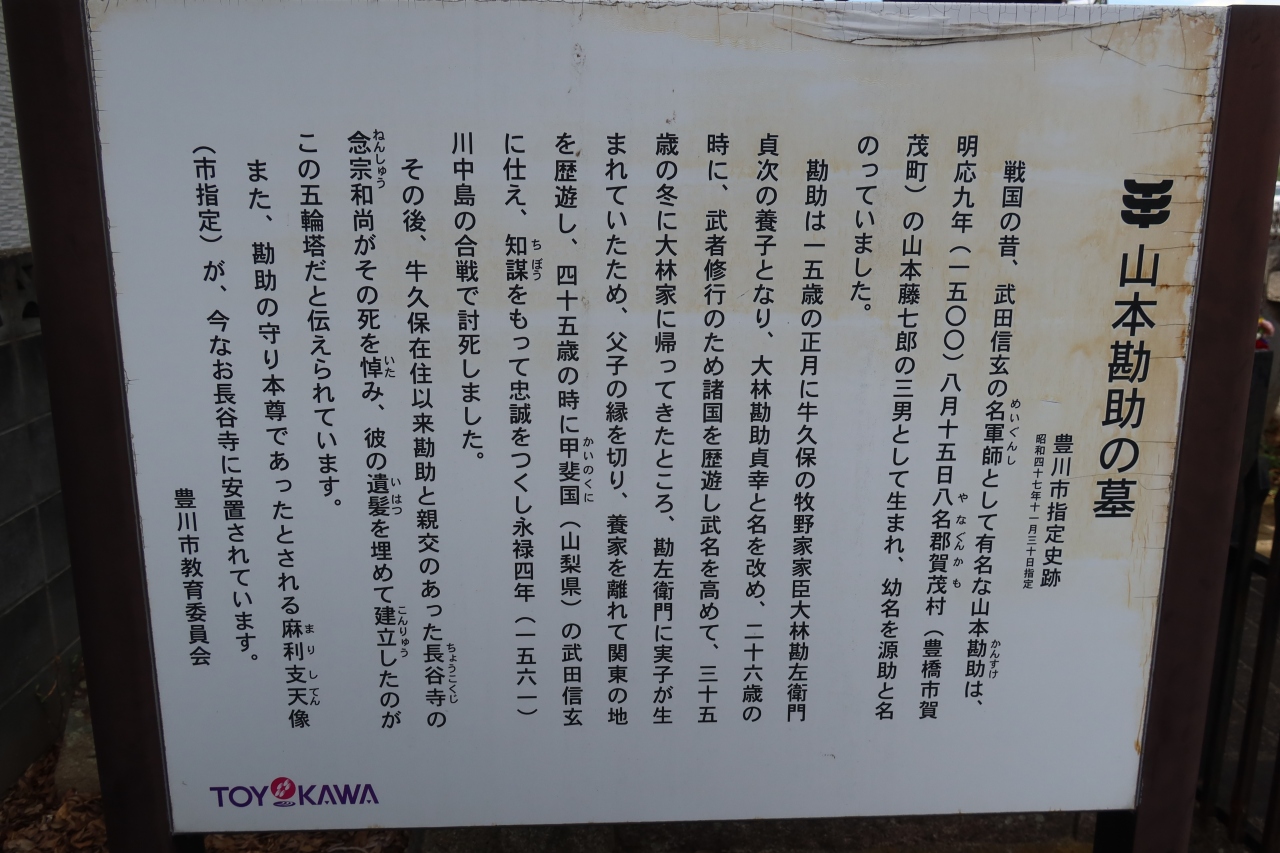 山本勘助の墓
豊川市指定史跡
昭和四十七年十一月三十日指定
戦国の昔、武田信玄の名軍師として有名な山本勘助は、
明応九年（一五〇〇）八月十五日八名郡賀茂村（豊橋市賀
茂町）の山本藤七郎の三男として生まれ、幼名を源助と名
のっていました。
勘助は一五歳の正月に牛久保の牧野家家臣大林勘左衛門
貞次の養子となり、大林勘助貞幸と名を改め、二十六歳の
時に、武者修行のため諸国を歴遊し武名を高めて、三十五
歳の冬に大林家に帰ってきたところ、勘左衛門に実子が生
まれていたため、父子の縁を切り、養家を離れて関東の地
を歴遊し、四十五歳の時に甲斐国（山梨県）の武田信玄
に仕え、知謀をもって忠誠をつくし永禄四年（一五六一）
川中島の合戦で討死しました。
その後、牛久保在住以来勘助と親交のあった長谷寺の
念宗和尚がその死を悼み、彼の遺髪を埋めて建立したのが
この五輪塔だと伝えられています。
また、勘助の守り本尊であったとされる麻利支天像
（市指定）が、今なお長谷寺に安置されています。
豊川市教育委員会
TOYOKAWA